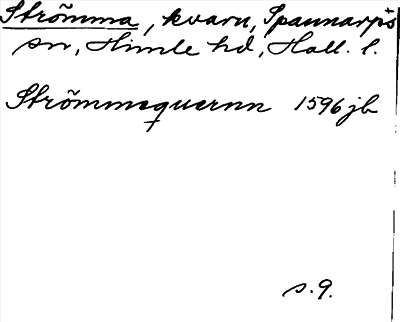 Strömma, kvarn, Spannarps
sn, Himle hd, Hall. l.
Strömmequernn 1596 jb
s. 9.